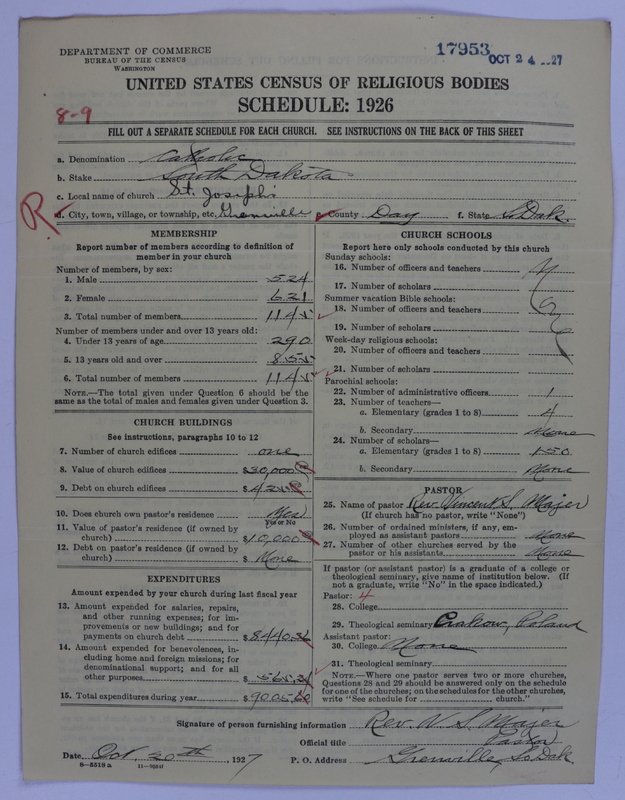 DEPARTMENT OF COMMERCE
BUREAU OF THE CENSUS
WASHINGTON
17953 OCT 24 27
UNITED STATES CENSUS OF RELIGIOUS BODIES
SCHEDULE: 1926
8-9
FILL OUT A SEPARATE SCHEDULE FOR EACH CHURCH. SEE INSTRUCTIONS ON THE BACK OF THIS SHEET
a. Denomination Catholic
b. Stake South Dakota
c. Local name of church St. Joseph's
R
d. City, town, village, or township, etc. Grenville e. County Day f. State S. Dak.
MEMBERSHIP
Report number of members according to definition of
member in your church
Number of members, by sex:
1. Male 524
2. Female 621
3. Total number of members 1145
Number of members under and over 13 years old:
4. Under 13 years of age 290
5. 13 years old and over 855
6. Total number of members 1145
NOTE.—The total given under Question 6 should be the
same as the total of males and females given under Question 3.
CHURCH BUILDINGS
See instructions, paragraphs 10 to 12
7. Number of church edifices one
8. Value of church edifices $30,000
9. Debt on church edifices $
10. Does church own pastor's residence Yes
Yes or No
11. Value of pastor's residence (if owned by
church) $10,000
12. Debt on pastor's residence (if owned by
church) $ None
EXPENDITURES
Amount expended by your church during last fiscal year
13. Amount expended for salaries, repairs,
and other running expenses; for im-
provements or new buildings; and for
payments on church debt $8440.36
14. Amount expended for benevolences, in-
cluding home and foreign missions; for
denominational support; and for all
other purposes $565.24
15. Total expenditures during year $9005.60
CHURCH SCHOOLS
Report here only schools conducted by this church
Sunday schools:
16. Number of officers and teachers
17. Number of scholars
Summer vacation Bible schools:
18. Number of officers and teachers
19. Number of scholars
Week-day religious schools:
20. Number of officers and teachers
21. Number of scholars
Parochial schools:
22. Number of administrative officers 1
23. Number of teachers—
a. Elementary (grades 1 to 8) 4
b. Secondary None
24. Number of scholars—
a. Elementary (grades 1 to 8) 150
b. Secondary None
PASTOR
25. Name of pastor Rev. Vincent S. Majer
(If church has no pastor, write "None")
26. Number of ordained ministers, if any, em-
ployed as assistant pastors None
27. Number of other churches served by the
pastor or his assistants None
If pastor (or assistant pastor) is a graduate of a college or
theological seminary, give name of institution below. (If
not a graduate, write "No" in the space indicated.)
Pastor: 4
28. College
29. Theological seminary Crakow, Poland
Assistant pastor:
30. College None
31. Theological seminary
NOTE.—Where one pastor serves two or more churches,
Questions 28 and 29 should be answered only on the schedule
for one of the churches; on the schedules for the other churches,
write "See schedule for church."
Signature of person furnishing information Rev. V. S. Majer
Official title Pastor
Date Oct. 20th, 1927 P. O. Address Grenville, S. Dak
8-5518 a